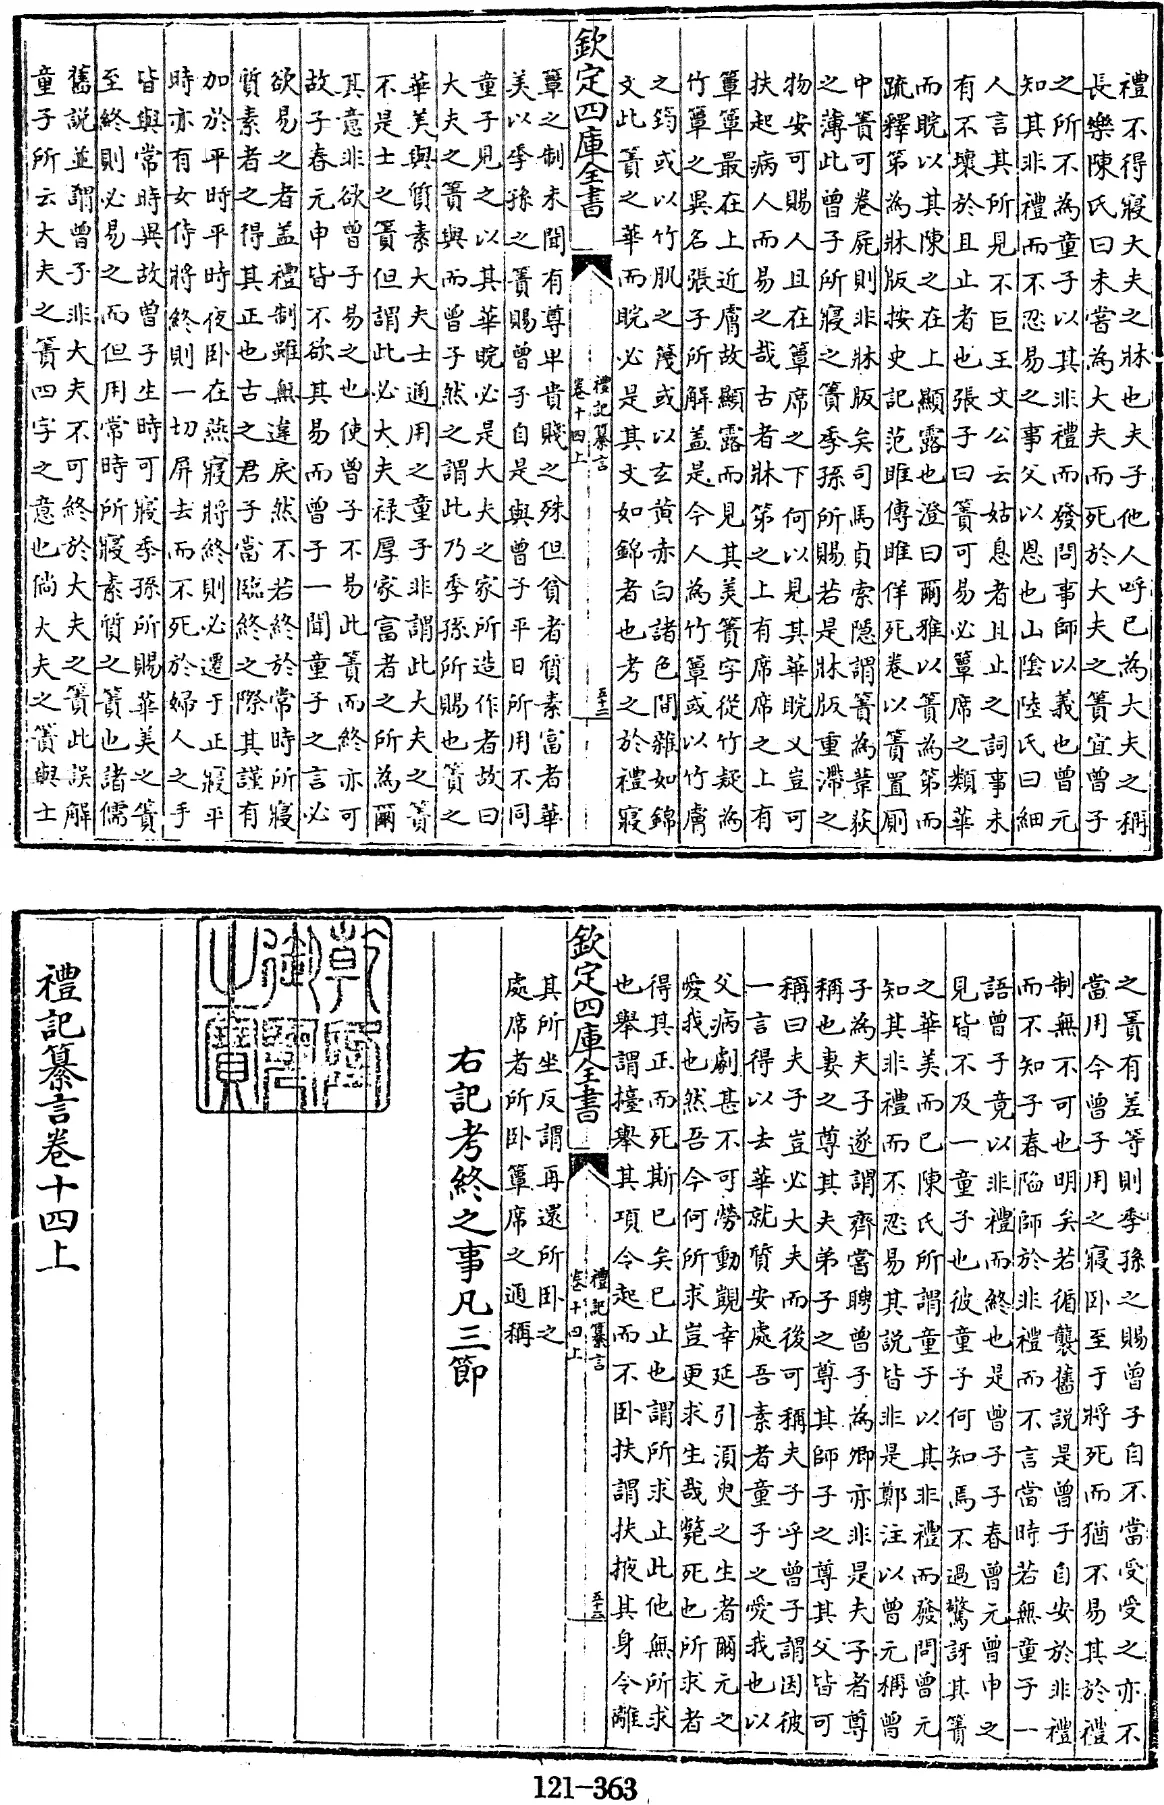 禮不得寢大夫之牀也夫子他人呼已為大夫之稱
長樂陳氏曰未嘗為大夫而死於大夫之簀宜曾子
之所不為童子以其非禮而發問事師以義也曾元
知其非禮而不忍易之事父以恩也山陰陸氏曰細
人言其所見不巨王文公云姑息者且止之詞事未
有不壞於且止者也張子曰簀可易必簟席之類華
而睆以其陳之在上顯露也澄曰爾雅以簀為第而
疏釋第為牀版按史記范雎傳雎佯死卷以簀置厠
中簀可卷屍則非牀版矣司馬貞索隱謂簀為葦荻
之薄此曾子所寢之簀季孫所賜若是牀版重滯之
物安可賜人且在簟席之下何以見其華睆又豈可
扶起病人而易之哉古者牀第之上有席席之上有
簟簟最在上近膚故顯露而見其美簀字從竹疑為
竹簟之異名張子所解盖是今人為竹簟或以竹膚
之筠或以竹肌之篾或以玄黄赤白諸色間雜如錦
文此簀之華而睆必是其文如錦者也考之於禮寢
欽定四庫全書
禮記纂言
卷十四上
五十三
簟之制未聞有尊卑貴賤之殊但貧者質素富者華
美以季孫之簀賜曾子自是與曾子平日所用不同
童子見之以其華睆必是大夫之家所造作者故曰
大夫之簀與而曾子然之謂此乃季孫所賜也簀之
華美與質素大夫士通用之童子非謂此大夫之簀
不是士之簀但謂此必大夫禄厚家富者之所為爾
其意非欲曾子易之也使曾子不易此簀而終亦可
故子春元申皆不欲其易而曾子一聞童子之言必
欲易之者盖禮制雖無違戾然不若終於常時所寢
質素者之得其正也古之君子當臨終之際其謹有
加於平時平時夜卧在燕寢將終則必遷于正寢平
時亦有女侍將終則一切屏去而不死於婦人之手
皆與常時異故曾子生時可寢季孫所賜華美之簀
至終則必易之而但用常時所寢素質之簀也諸儒
舊説並謂曾子非大夫不可終於大夫之簀此誤解
童子所云大夫之簀四字之意也倘大夫之簀與士
之簀有差等則季孫之賜曾子自不當受受之亦不
當用今曾子用之寢卧至于將死而猶不易其於禮
制無不可也明矣若循襲舊説是曾子自安於非禮
而不知子春陷師於非禮而不言當時若無童子一
語曾子竟以非禮而終也是曾子子春曾元曾申之
見皆不及一童子也彼童子何知焉不過驚訝其簀
之華美而已陳氏所謂童子以其非禮而發問曾元
知其非禮而不忍易其説皆非是鄭注以曾元稱曾
子為夫子遂謂齊嘗聘曾子為卿亦非是夫子者尊
稱也妻之尊其夫弟子之尊其師子之尊其父皆可
稱曰夫子豈必大夫而後可稱夫子乎曾子謂因彼
一言得以去華就質安處吾素者童子之愛我也以
父病劇甚不可勞動覬幸延引須臾之生者爾元之
愛我也然吾今何所求豈更求生哉斃死也所求者
得其正而死斯已矣已止也謂所求止此他無所求
也舉謂擡舉其項令起而不卧扶謂扶掖其身令離
欽定四庫全書
禮記纂言
卷十四上
五十三
其所坐反謂再還所卧之
處席者所卧簟席之通稱
右記考終之事凡三節
乾隆
御覽
之寶
禮記纂言卷十四上
121-363